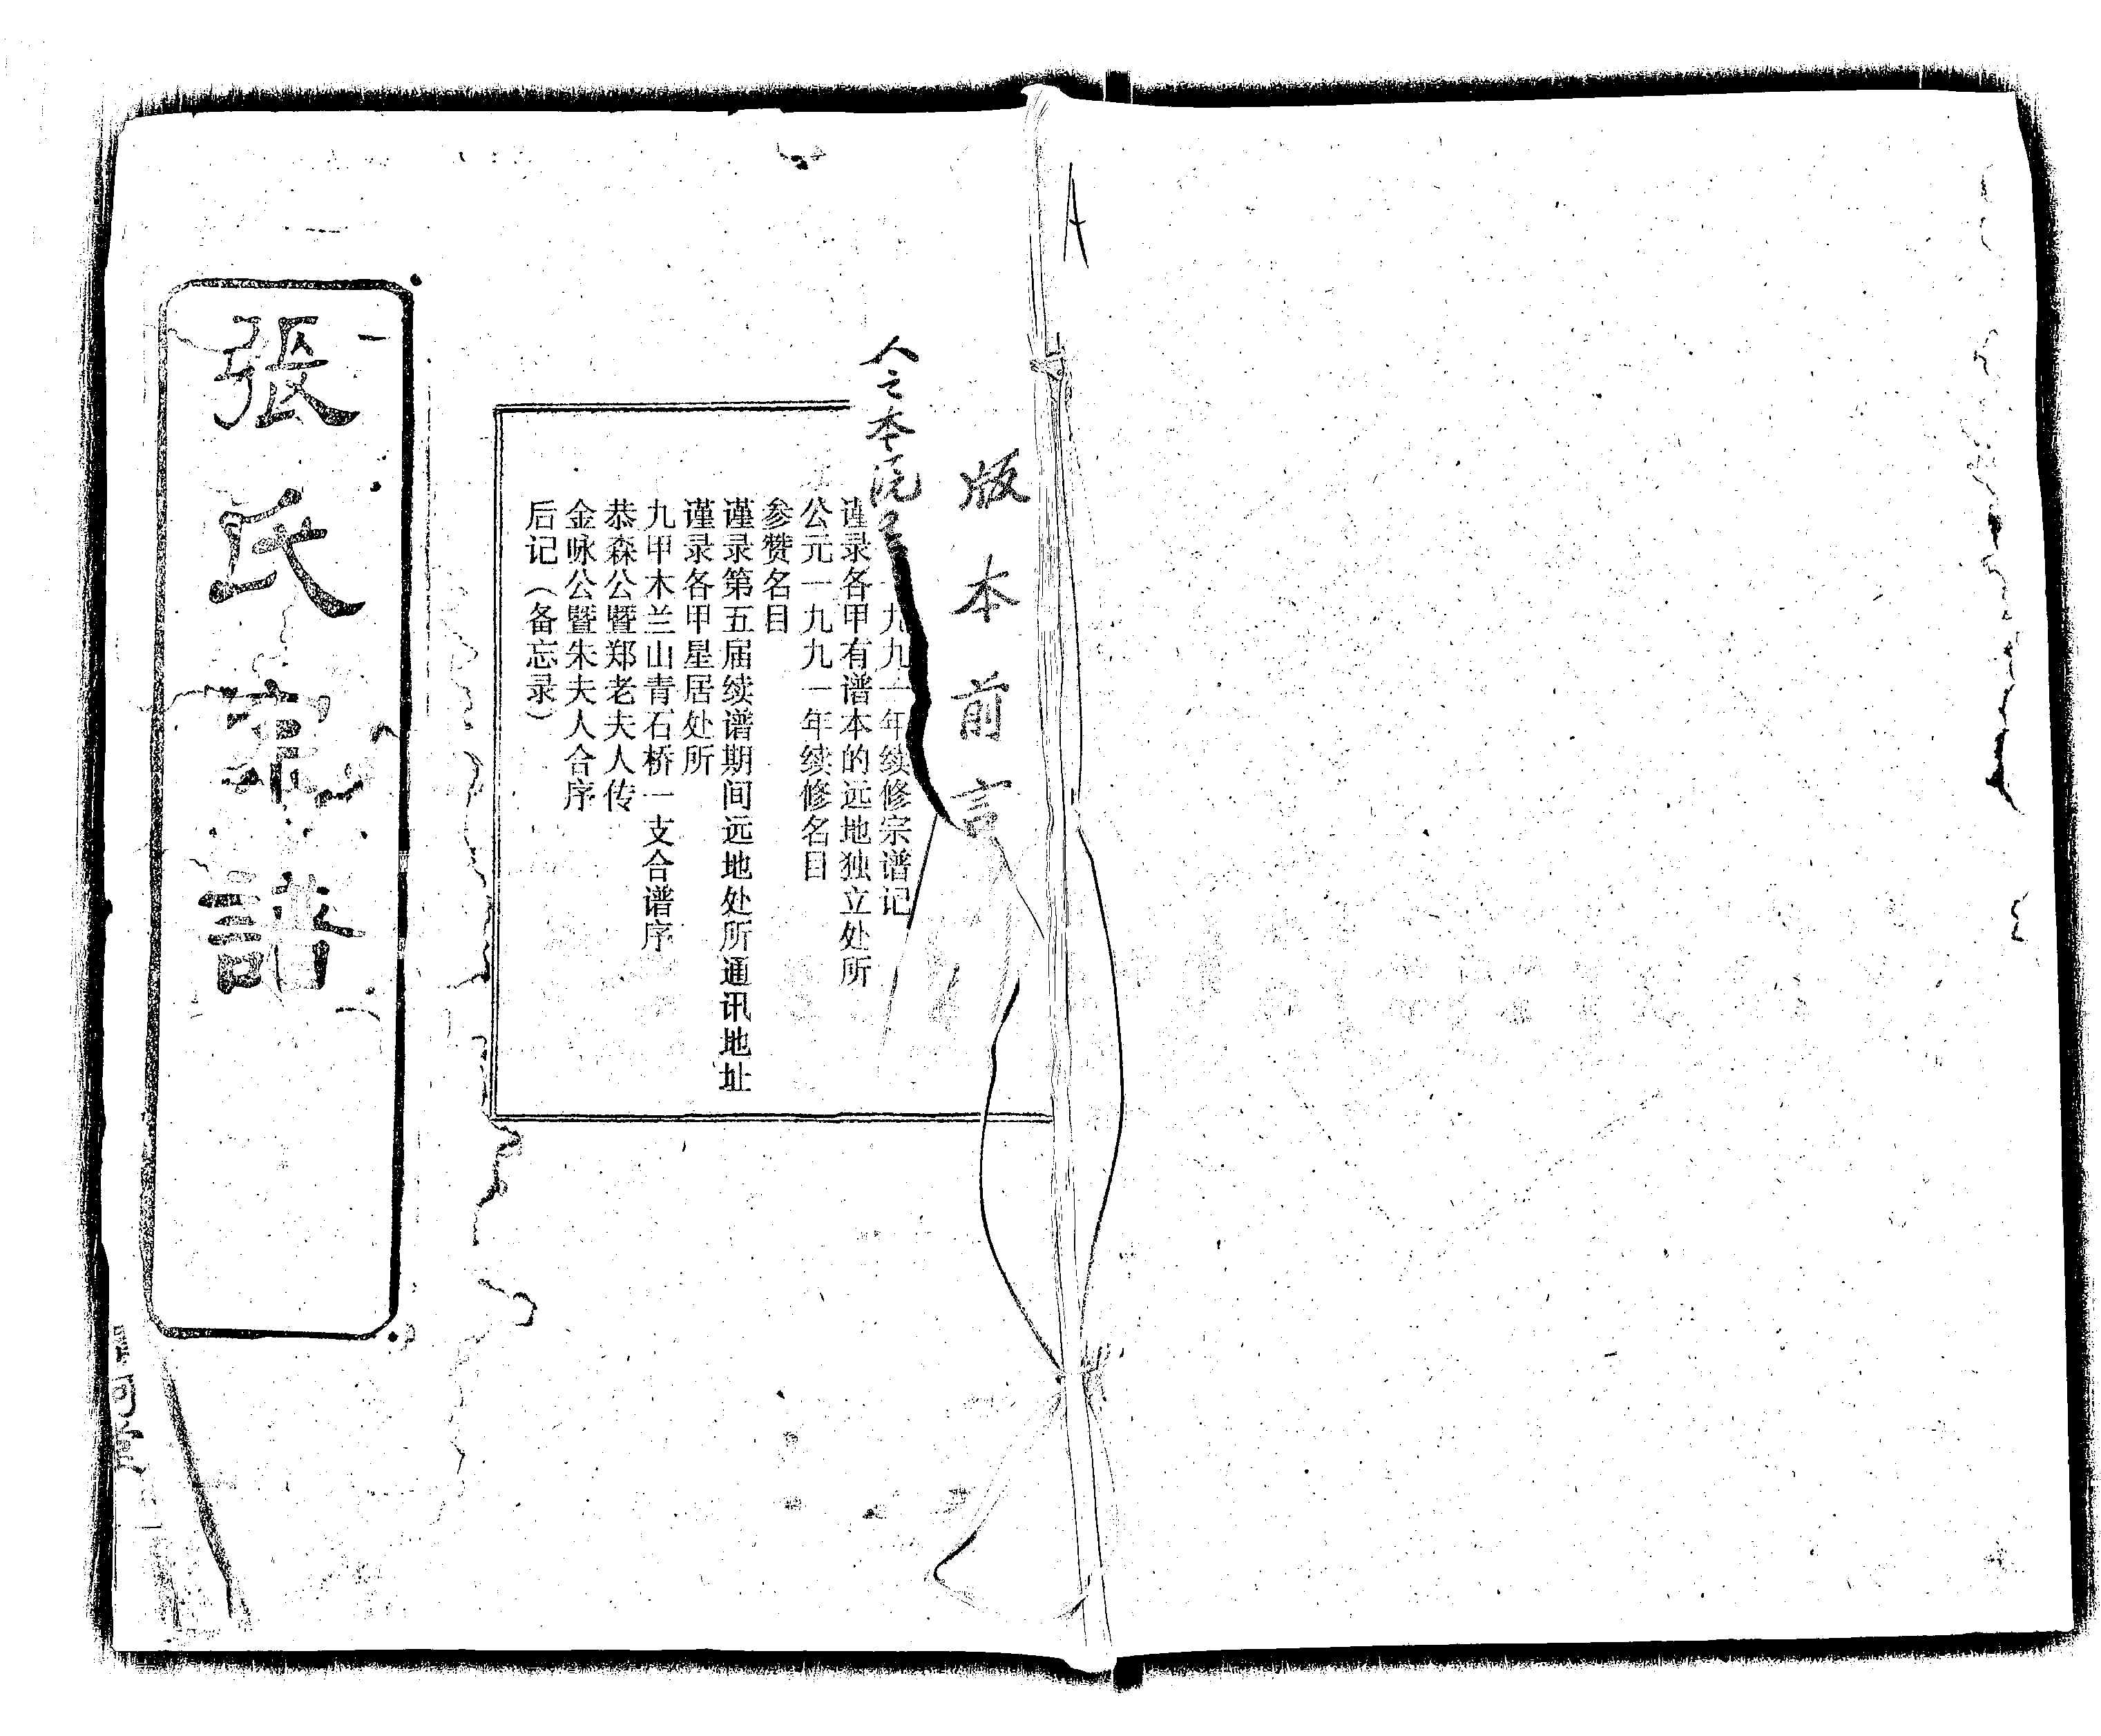 A
版本前言
人之本
一九九一年续修宗谱记
谨录各甲有谱本的远地独立处所
公元一九九一年续修名目
参赞名目
谨录第五届续谱期间远地处所通讯地址
谨录各甲星居处所
九甲木兰山青石桥一支合谱序
恭森公暨郑老夫人传
金咏公暨朱夫人合序
后记（备忘录）
張氏宗譜